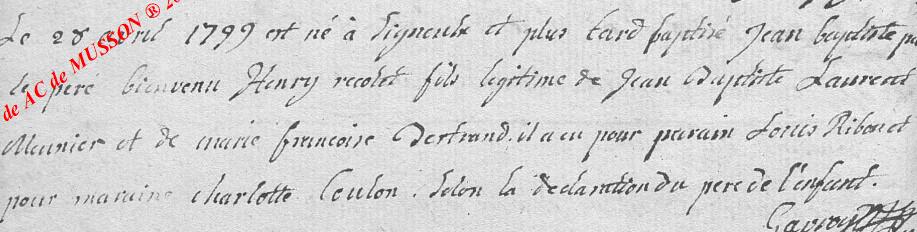 de AC de MUSSON ®
Le 28 avril 1799 est né à Signeulx et plus tard baptisé Jean baptiste
le pere bienvenu Henry recolet fils legitime de Jean Baptiste Laurent
Meunier et de marie francoise Bertrand. il a eu pour parain Louis Ribonet
pour maraine charlotte Coulon. selon la declaration du pere de l'enfant.